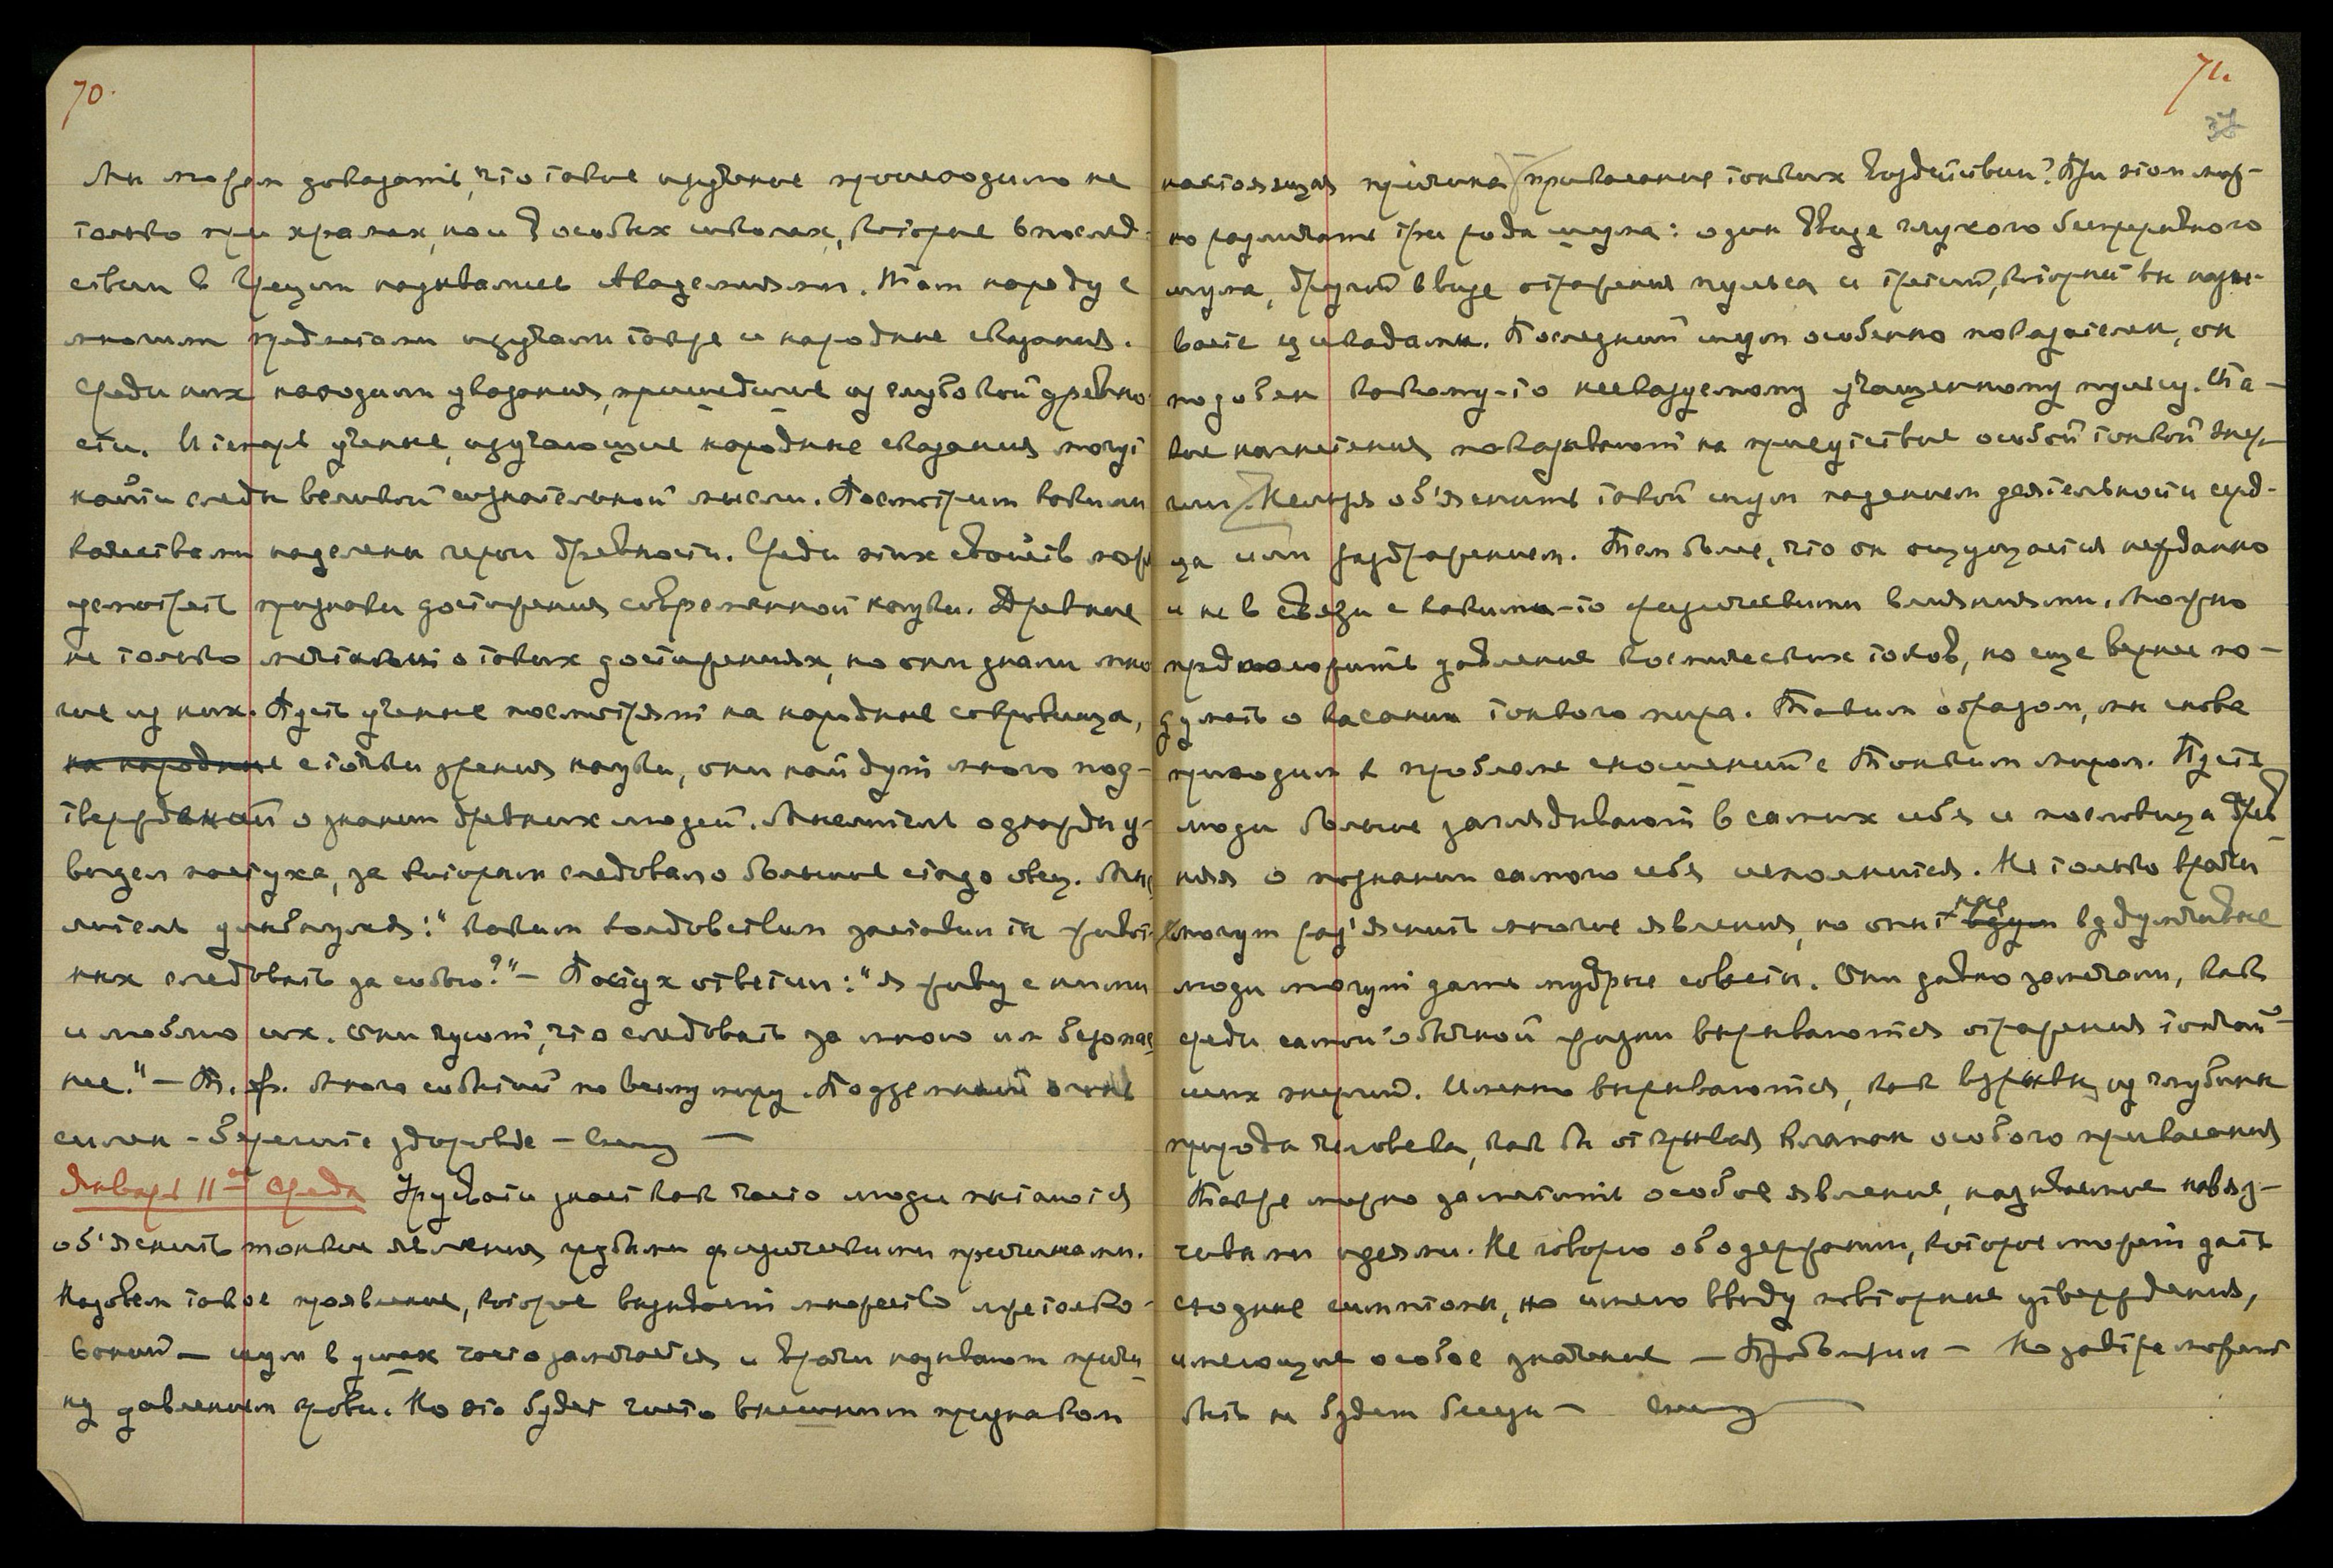 70.
Мы можем доказать, что такое изучение происходило не
только при храмах, но и в особых школах, которые впослед-
ствии в Греции назывались Академиями. Там наряду с
многими предметами изучали также и народные сказания.
Среди них находим указания, пришедшие из глубокой древно-
сти. И теперь ученые, изучающие народные сказания могут
найти следы великой сознательной мысли. Посмотрим какими
качествами наделены герои древности. Среди этих свойств
усмотреть признаки достижения современной науки. Древние
не только мечтали о таких достижениях, но они знали мно-
гие из них. Пусть ученые посмотрят на народные сокровища,
на народные с точки зрения науки, они найдут много под-
тверждений о знании древних людей. Мыслитель однажды у-
видел пастуха, за которым следовало большое стадо овец. Мыс-
литель улыбнулся: "каким колдовством заставил ты живот-
ных следовать за собою?" — Пастух ответил: "я живу с ними
и люблю их. Они чуют, что следовать за мною им безопас-
нее." — Т. ж. Много событий по всему миру. Подземный огнь
силен - берегите здоровье —
Январь 11-ое Среда Урусвати знает как часто люди пытаются
об'яснить тонкие явления грубыми физическими причинами.
Назовем такое проявление, которое вызывает множество претолко-
ваний — шум в ушах часто замечается и врачи называют причи-
ну давлением крови. Но это будет часто внешним признаком
71.
37
настоящая причина прикасание тонких воздействий. При этом мож-
но различать три рода шума: один в виде глухого беспрерывного
шума, другой в виде отражения пульса и третий, который вы назы-
ваете цикадами. Последний шум особенно показателен, он
подобен какому-то несказуемому учащенному пульсу. Та-
кие нагнетения показывают на присутствие особой тонкой энер-
гии. Нельзя об'яснить такой шум падением деятельности серд-
ца или раздражением. Тем более, что он ощущается нежданно
и не в связи с какими-то физическими влияниями. Можно
предположить давление космических токов, но еще вернее по-
думать о касании тонкого мира. Таким образом, мы снова
приходим к проблеме сношений с Тонким миром. Пусть
люди больше заглядывают в самих себя и пословица древ-
няя о познании самого себя исполнится. Не только врачи
могут раз'яснить многие явления, но они все вдумчивые
люди могут дать мудрые советы. Они давно замечали, как
среди самой обычной жизни вырываются отражения тончай-
ших энергий. Именно вырываются, как взрывы из глубины
природы человека, как бы открывая клапан особого прикасания
Также можно заметить особое явление, называемое навяз-
чивыми идеями. Не говорю об одержании, которое может дать
сходные симптомы, но имею в виду повторные утверждения,
имеющие особое значение — Но завтра может
быть не будет беседы —